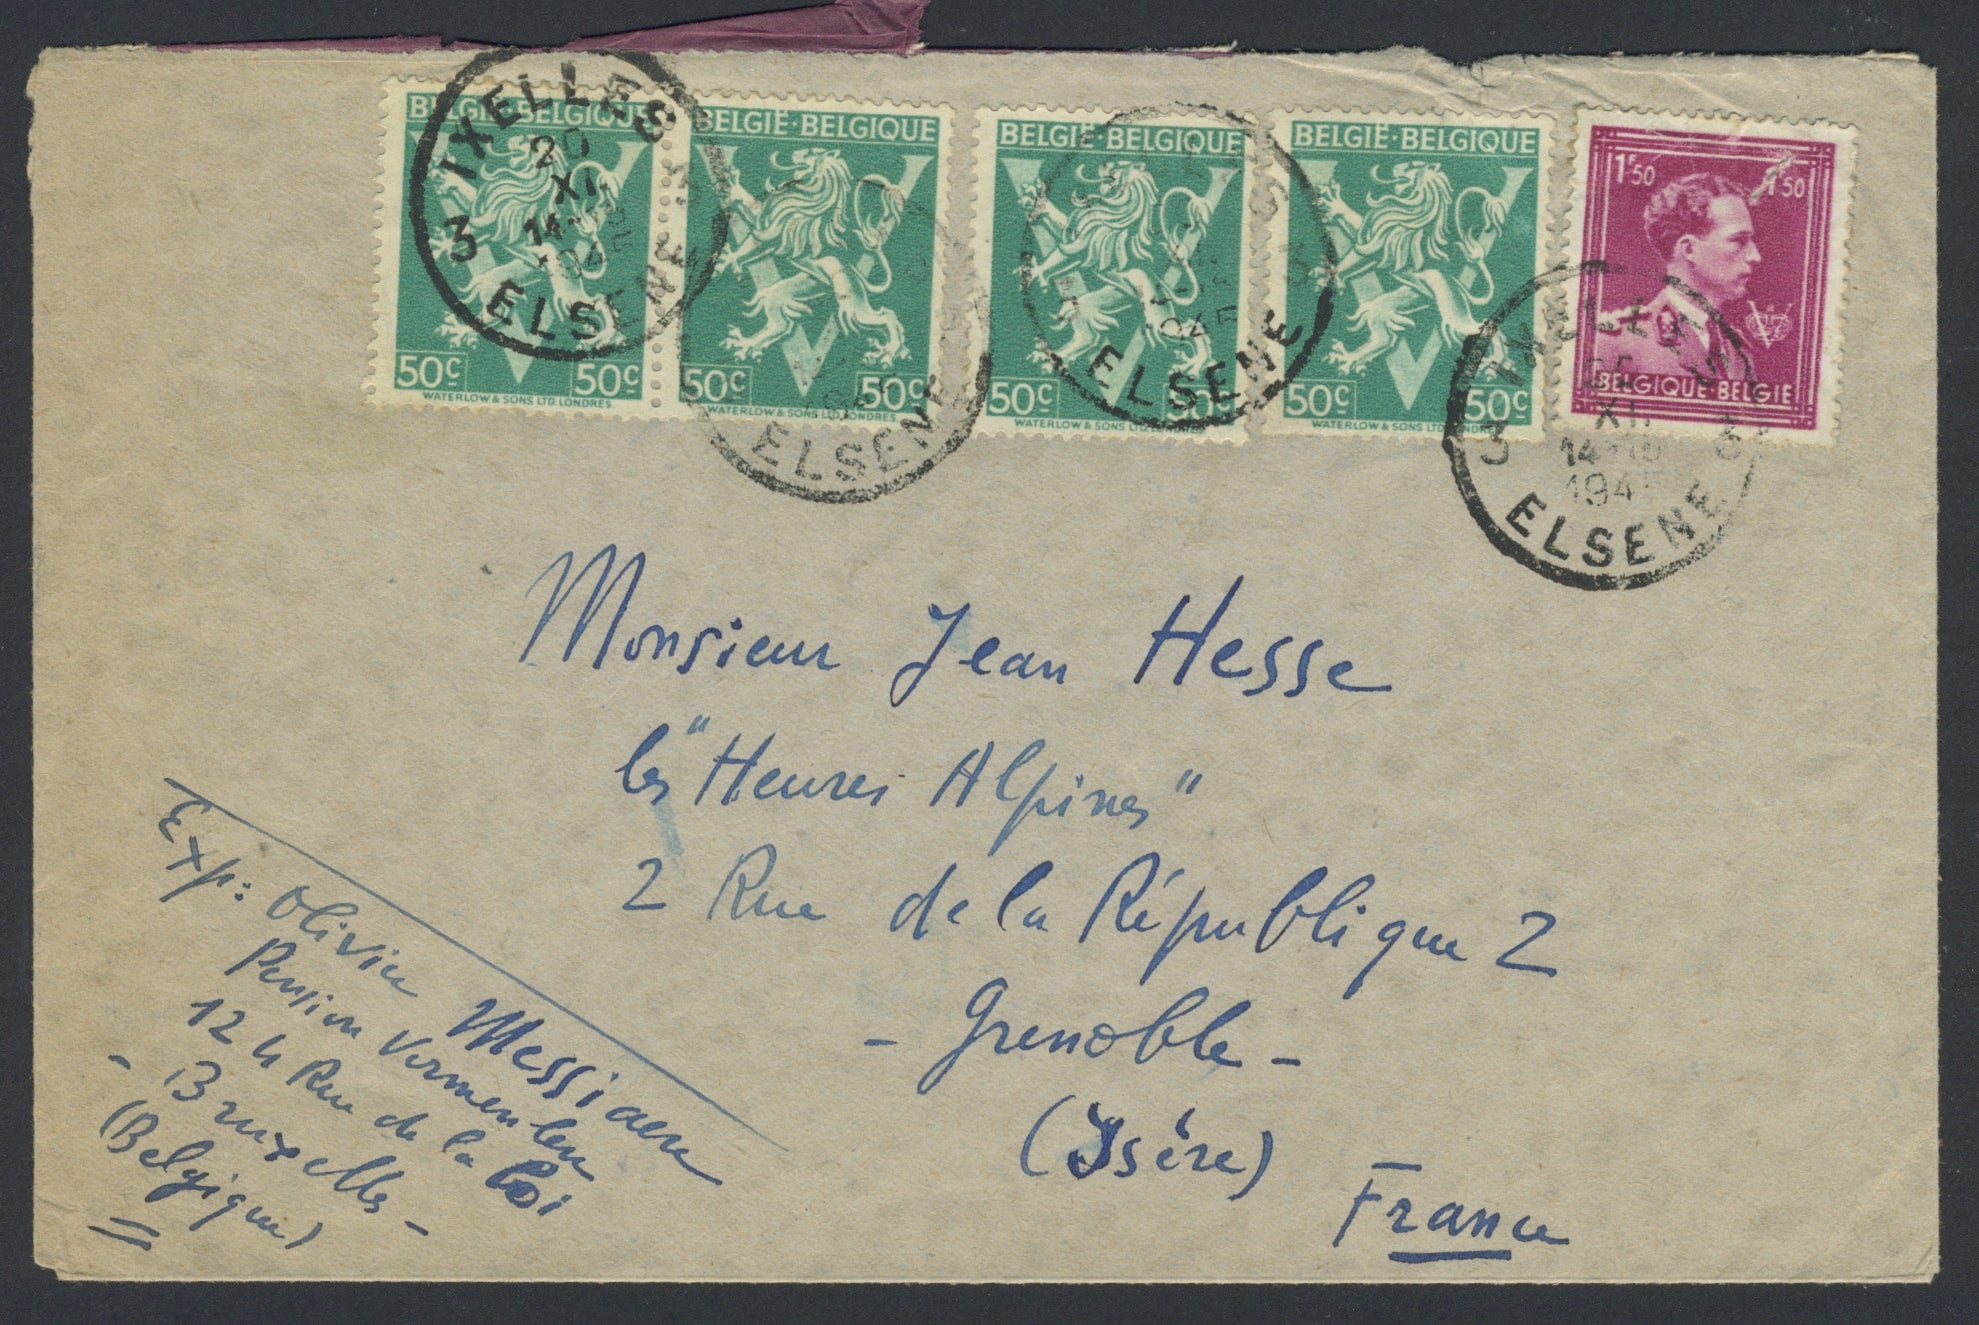 BELGIË·BELGIQUE
50c 50c
WATERLOW & SONS LTD. LONDRES
BELGIË·BELGIQUE
50c 50c
WATERLOW & SONS LTD. LONDRES
BELGIË·BELGIQUE
50c 50c
WATERLOW & SONS LTD. LONDRES
BELGIË·BELGIQUE
50c 50c
WATERLOW & SONS LTD. LONDRES
1F50 1F50
BELGIQUE·BELGIË
IXELLES
XI
1945
3
ELSENE
ELSENE
1945
ELSENE
IXELLES
XI
14-15
3 3
ELSENE
Monsieur Jean Hesse
les "Heures Alpines"
2 Rue de la République 2
- Grenoble -
(Isère)
France
Exp: Olivier Messiaen
Pension Vermeulen
124 Rue de la Loi
- Bruxelles -
(Belgique)